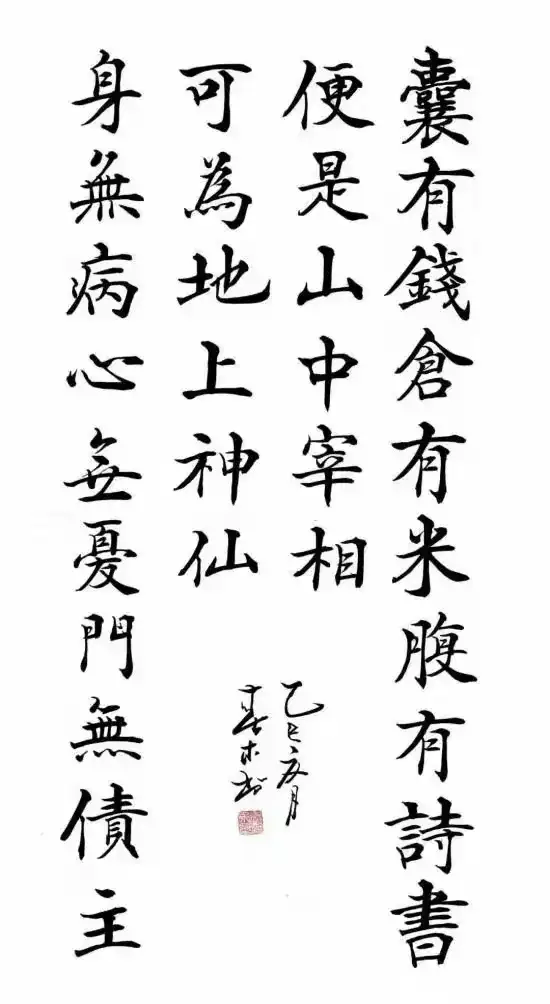 囊有錢倉有米腹有詩書
便是山中宰相
身無病心無憂門無債主
可為地上神仙
乙巳夏月
春木书